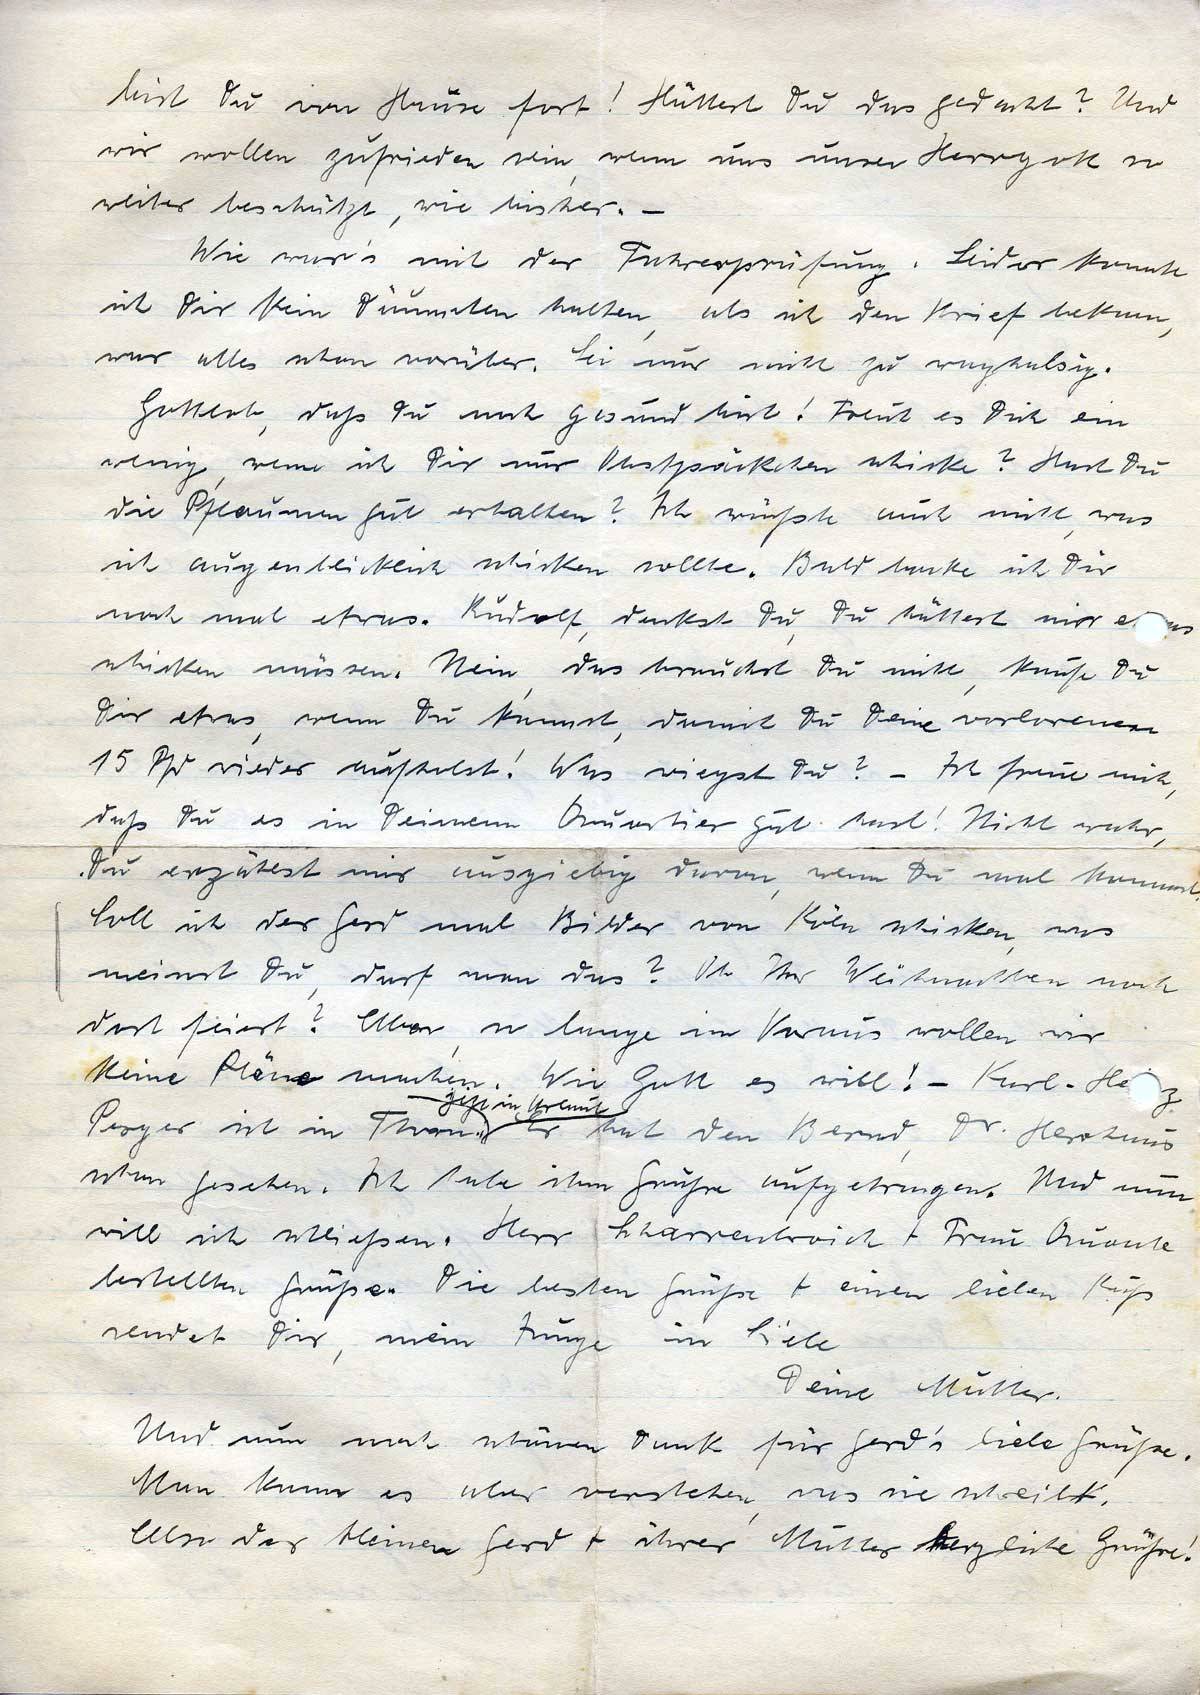 bist Du von Hause fort! Hättest Du das gedacht? Und
wir wollen zufrieden sein, wenn uns unser Herrgott so
weiter beschützt, wie bisher. –
Wie war's mit der Fahrerprüfung. Leider konnte
ich Dir kein Däumchen halten, als ich den Brief bekam,
war alles schon vorüber. Sei nur nicht zu waghalsig.
Gottlob, daß Du noch gesund bist! Freut es Dich ein
wenig, wenn ich Dir nur Obstpäckchen schicke? Hast Du
die Pflaumen gut erhalten? Ich wüßte auch nicht, was
ich augenblicklich schicken sollte. Bald backe ich Dir
noch mal etwas. Rudolf, denkst Du, Du hättest mir etwas
schicken müssen. Nein, das brauchst Du nicht, kaufe Du
Dir etwas, wenn Du kannst, damit Du Deine verlorenen
15 Pfd wieder aufholst! Was wiegst Du? – Ich freue mich,
daß Du es in Deinem Quartier gut hast! Nicht wahr,
Du erzählst mir ausgiebig davon, wenn Du mal kommst.
Soll ich der Gerd mal Bilder von Köln schicken, was
meinst Du, darf man das? Ob Ihr Weihnachten noch
dort feiert? Aber, so lange im Voraus wollen wir
keine Pläne machen. Wie Gott es will! – Karl-Heinz
jetzt in Urlaub
ist in Er hat den Bernd, Dr. Herkhaus
schon gesehen. Ich habe ihm Grüße aufgetragen. Und nun
will ich schließen. Herr Scharrenbroich + Frau Quante
bestellten Grüße. Die besten Grüße + einen lieben Kuß
sendet Dir, mein Junge in Liebe
Deine Mutter.
Und nun noch schönen Dank für Gerd's liebe Grüße.
Man kann es aber verstehen, was sie schreibt.
Also der kleinen Gerd + ihrer Mutter herzliche Grüße!